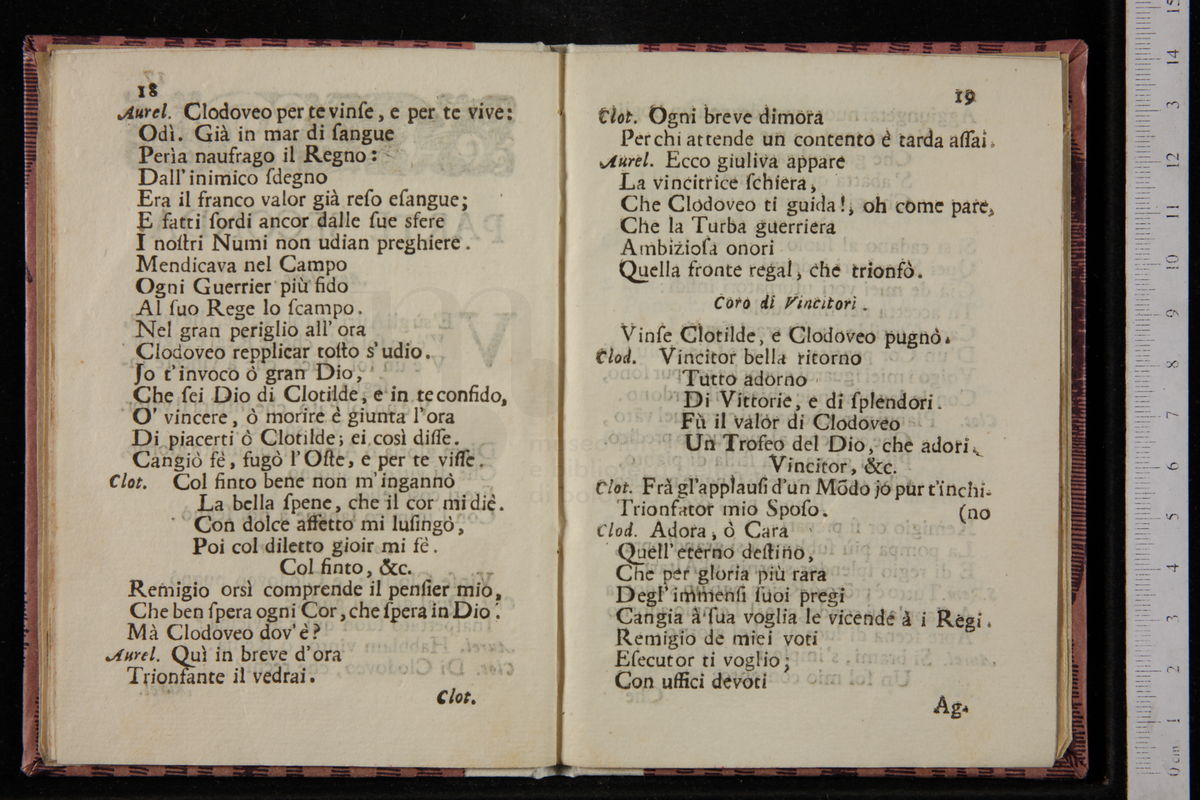 18
Aurel. Clodoveo per te vinſe, e per te vive:
Odì. Già in mar di ſangue
Perìa naufrago il Regno:
Dall' inimico ſdegno
Era il franco valor già reſo eſangue;
E fatti ſordi ancor dalle ſue sfere
I noſtri Numi non udian preghiere.
Mendicava nel Campo
Ogni Guerrier più fido
Al ſuo Rege lo ſcampo.
Nel gran periglio all' ora
Clodoveo repplicar toſto s' udio.
Jo t'invoco ò gran Dio,
Che ſei Dio di Clotilde, e in te confido,
O' vincere, ò morire è giunta l'ora
Di piacerti ò Clotilde; ei così diſſe.
Cangiò fè, fugò l'Oſte, e per te viſſe.
Clot. Col finto bene non m'ingannò
La bella ſpene, che il cor mi diè.
Con dolce affetto mi luſingò,
Poi col diletto gioir mi fè.
Col finto, &c.
Remigio orsì comprende il penſier mio,
Che ben ſpera ogni Cor, che ſpera in Dio.
Mà Clodoveo dov' è?
Aurel. Quì in breve d'ora
Trionfante il vedrai.
Clot.
19
Clot. Ogni breve dimora
Per chi attende un contento è tarda aſſai.
Aurel. Ecco giuliva appare
La vincitrice ſchiera,
Che Clodoveo ti guida!, oh come pare,
Che la Turba guerriera
Ambizioſa onori
Quella fronte regal, che trionfò.
Coro di Vincitori.
Vinſe Clotilde, e Clodoveo pugnò.
Clod. Vincitor bella ritorno
Tutto adorno
Di Vittorie, e di ſplendori.
Fù il valor di Clodoveo
Un Trofeo del Dio, che adori.
Vincitor, &c.
Clot. Frà gl'applauſi d'un Mõdo jo pur t'inchi-
Trionfator mio Spoſo. (no
Clod. Adora, ò Cara
Quell' eterno deſtino,
Che per gloria più rara
Degl' immenſi ſuoi pregi
Cangia à ſua voglia le vicende à i Regi.
Remigio de miei voti
Eſecutor ti voglio;
Con uffici devoti
Ag-
0 cm 1 2 3 4 5 6 7 8 9 10 11 12 13 14 15